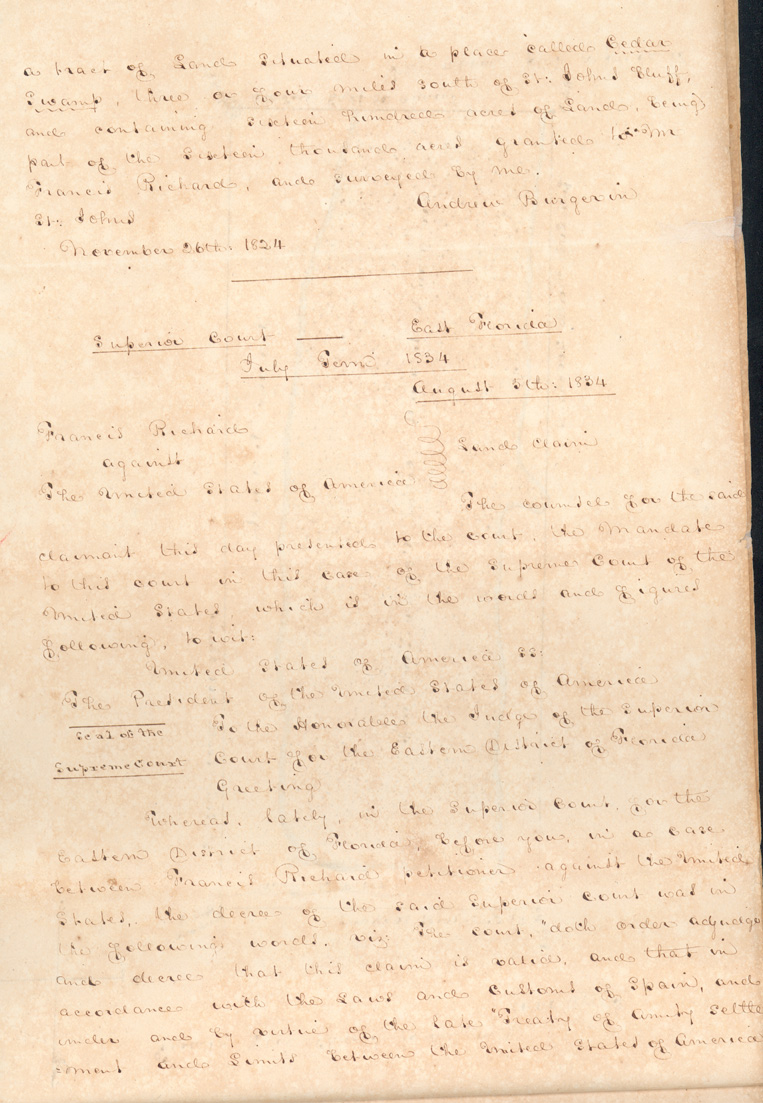 a tract of Land Situated in a place called Cedar
Swamp, three or four miles South of St: Johns Bluff,
and containing Sixteen Hundred acres of Land, being
part of the Sixteen thousand acres granted to Mr
Francis Richard, and surveyed by me.
Andrew Burgevin
St: Johns
November 26th: 1824
Superior Court — East Florida
July Term 1834
August 5th: 1834
Francis Richard
against
Land Claim
The United States of America
The counsel for the said
claimant this day presented to the court, the Mandate
to this court in this case of the Supreme Court of the
United States which is in the words and figures
following, to wit:
United States of America SS:
The President of the United States of America
Seal of the
Supreme Court
To the Honorable the Judge of the Superior
Court for the Eastern District of Florida
Greeting
Whereas, lately, in the Superior Court, for the
Eastern District of Florida, before you, in a case
between Francis Richard petitioner against the United
States, the decree of the said Superior Court was in
the following words, viz: The court, "doth order adjudge
and decree that this claim is valid, and that in
accordance with the Laws and Customs of Spain, and
under and by virtue of the late Treaty of Amity Settle
=ment and Limits between the United States of America